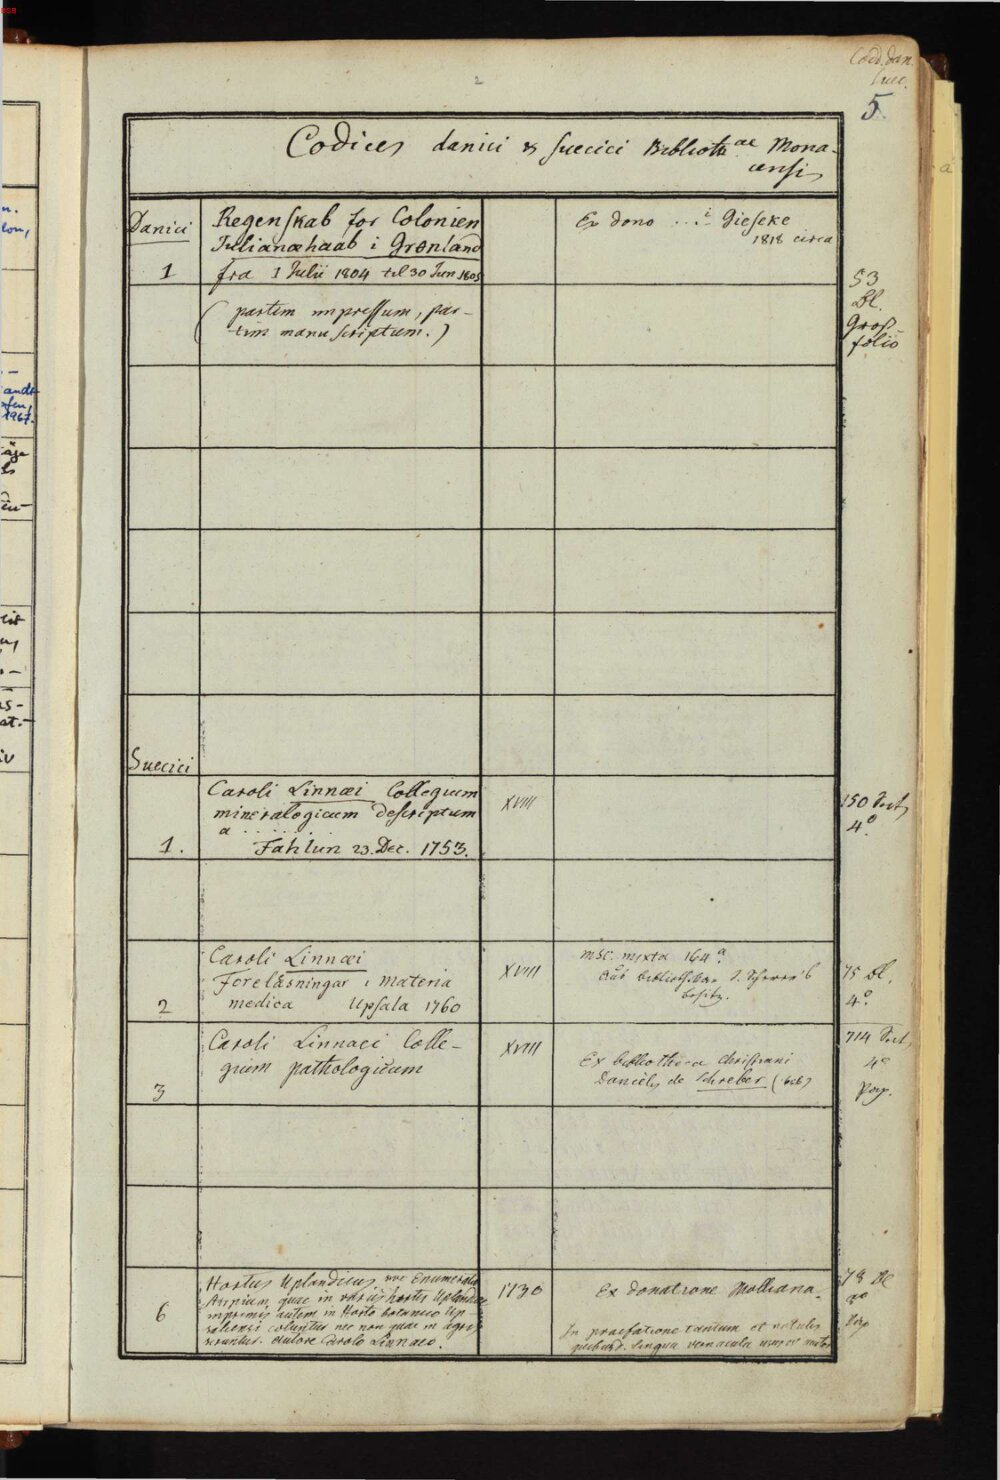 Codd. dan.
suec.
5
2
Codices danici & suecici Biblioth.ae Mona-
censis
Danici
1
Regenskab for Colonien
Julianæhaab i Grønland
fra 1 Julii 1804 til 30 Jun 1805
(partim impressum, par-
tim manu scriptum.)
Ex dono ... Gieseke
1818 circa
53
Bl.
Groß-
folio
Suecici
1.
Caroli Linnæi Collegium
mineralogicum descriptum
a . . . . . . .
Fahlun 23. Dec. 1753.
XVIII
150
4°
2
Caroli Linnæi
Foreläsningar i materia
medica Upsala 1760
XVIII
msc. mixta 164a.
besitz.
75 Bl.
4°
3
Caroli Linnaei Colle-
gium pathologicum
XVIII
Ex bibliotheca Christiani
Danielis de Schreber
714
4°
Pap.
6
Hortus Uplandicus, sive Enumeratio
quae in variis hortis Uplandiae
imprimis autem in Horto botanico Up-
saliensi coluntur nec non quae in agris
autore Carolo Linnaeo.
1730
Ex donatione Molliana.
In praefatione tantum et notulis
lingua vernacula
78 Bl